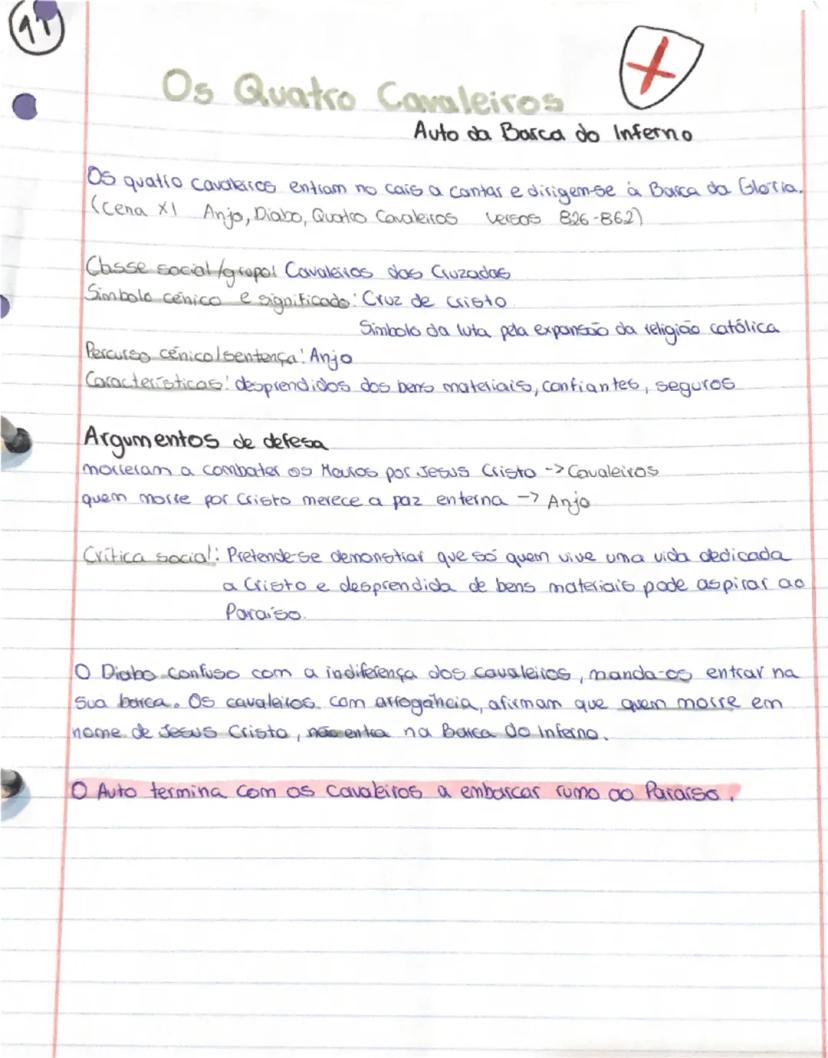 11
Os Quatro Cavaleiros
Auto da Barca do Inferno
Os quatro cavaleiros entram no cais a cantar e dirigem-se à Barca da Glória.
(Cena XI Anjo, Diabo, Quatro Cavaleiros versos 826-862)
Classe social/grupo: Cavaleiros das Cruzadas
Símbolo cénico e significado: Cruz de cristo
Símbolo da luta pela expansão da religião católica
Percurso cénico/sentença: Anjo
Características: desprendidos dos bens materiais, confiantes, seguros
Argumentos de defesa
morreram a combater os Mouros por Jesus Cristo -> Cavaleiros
quem morre por Cristo merece a paz enterna -> Anjo
Crítica social: Pretende-se demonstrar que só quem vive uma vida dedicada
a Cristo e desprendida de bens materiais pode aspirar ao
Paraíso.
O Diabo confuso com a indiferença dos cavaleiros, manda-os entrar na
sua barca. Os cavaleiros, com arrogância, afirmam que quem morre em
nome de Jesus Cristo, não entra na Barca do Inferno.
O Auto termina com os cavaleiros a embarcar rumo ao Paraíso.